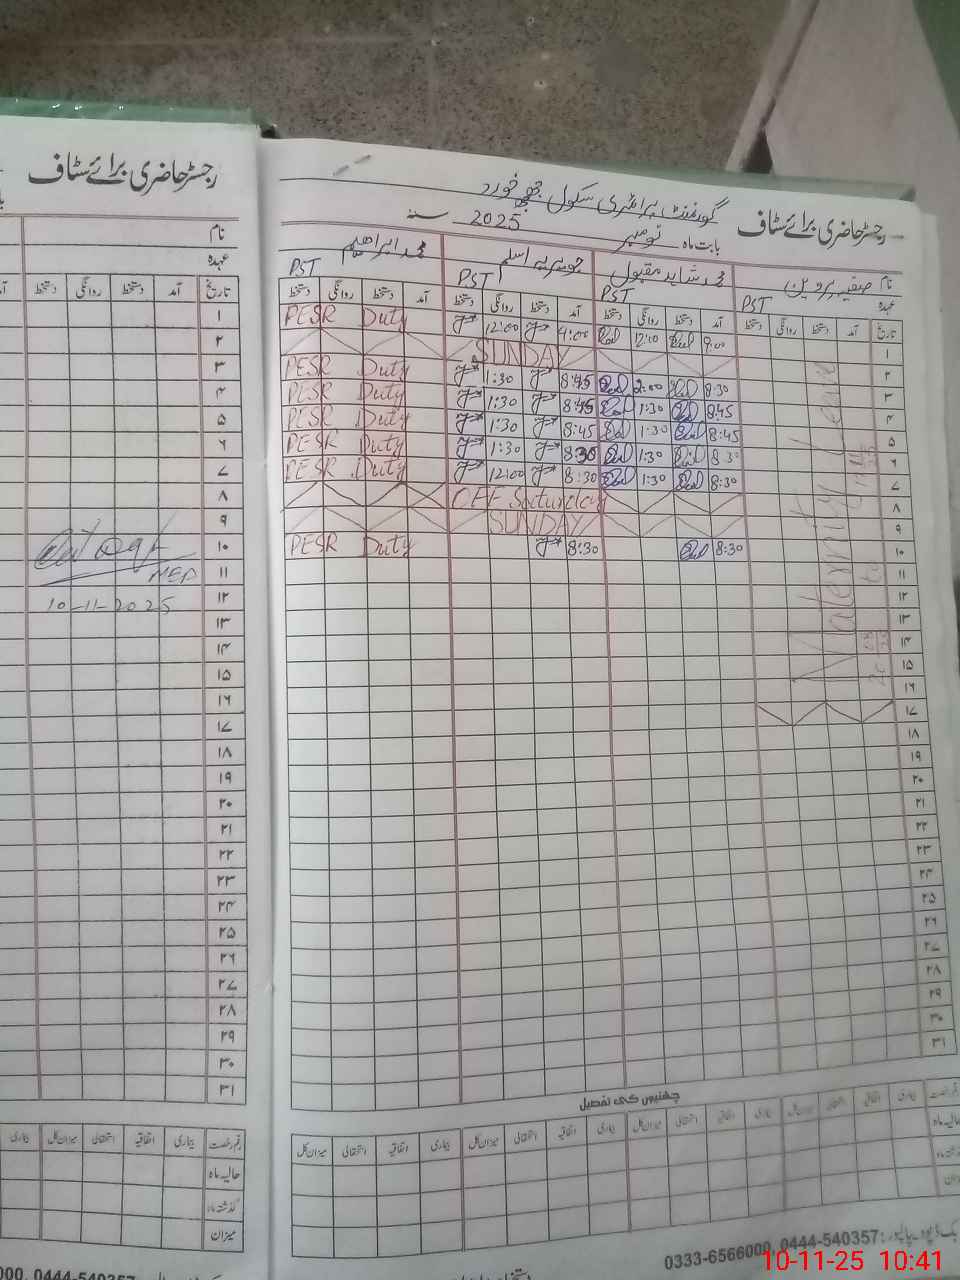 رجسٹر حاضری برائے سٹاف
نام
عہدہ
تاریخ آمد دستخط روانگی دستخط
۱
۲
۳
۴
۵
۶
۷
۸
۹
۱۰
۱۱
۱۲
۱۳
۱۴
۱۵
۱۶
۱۷
۱۸
۱۹
۲۰
۲۱
۲۲
۲۳
۲۴
۲۵
۲۶
۲۷
۲۸
۲۹
۳۰
۳۱
10-11-2025
قسم رخصت بیماری اتفاقیہ استحقاقی میزان کل بیماری
حالیہ ماہ
گذشتہ ماہ
میزان
0444-540357
رجسٹر حاضری برائے سٹاف
گورنمنٹ پرائمری سکول خورد
بابت ماہ نومبر 2025 سنہ
نام صفیہ پروین محمد شاہد مقبول جویریہ اسلم محمد ابراھیم
عہدہ PST PST PST PST
تاریخ آمد دستخط روانگی دستخط آمد دستخط روانگی دستخط آمد دستخط روانگی دستخط آمد دستخط روانگی دستخط
۱ 9:00 12:00 9:00 12:00 PESR Duty
۲ SUNDAY
۳ 8:30 2:00 8:45 1:30 PESR Duty
۴ 8:45 1:30 8:45 1:30 PESR Duty
۵ 8:45 1:30 8:45 1:30 PESR Duty
۶ 8:30 1:30 8:30 1:30 PESR Duty
۷ 8:30 1:30 8:30 12:00 PESR Duty
۸ OFF Saturday
۹ SUNDAY
۱۰ 8:30 8:30 PESR Duty
Maternity Leave
to
۱۱
۱۲
۱۳
۱۴
۱۵
۱۶
۱۷
۱۸
۱۹
۲۰
۲۱
۲۲
۲۳
۲۴
۲۵
۲۶
۲۷
۲۸
۲۹
۳۰
۳۱
چھٹیوں کی تفصیل
قسم رخصت بیماری اتفاقیہ استحقاقی میزان کل بیماری اتفاقیہ استحقاقی میزان کل بیماری اتفاقیہ استحقاقی میزان کل
حالیہ ماہ
0333-6566000, 0444-540357:
10-11-25 10:41